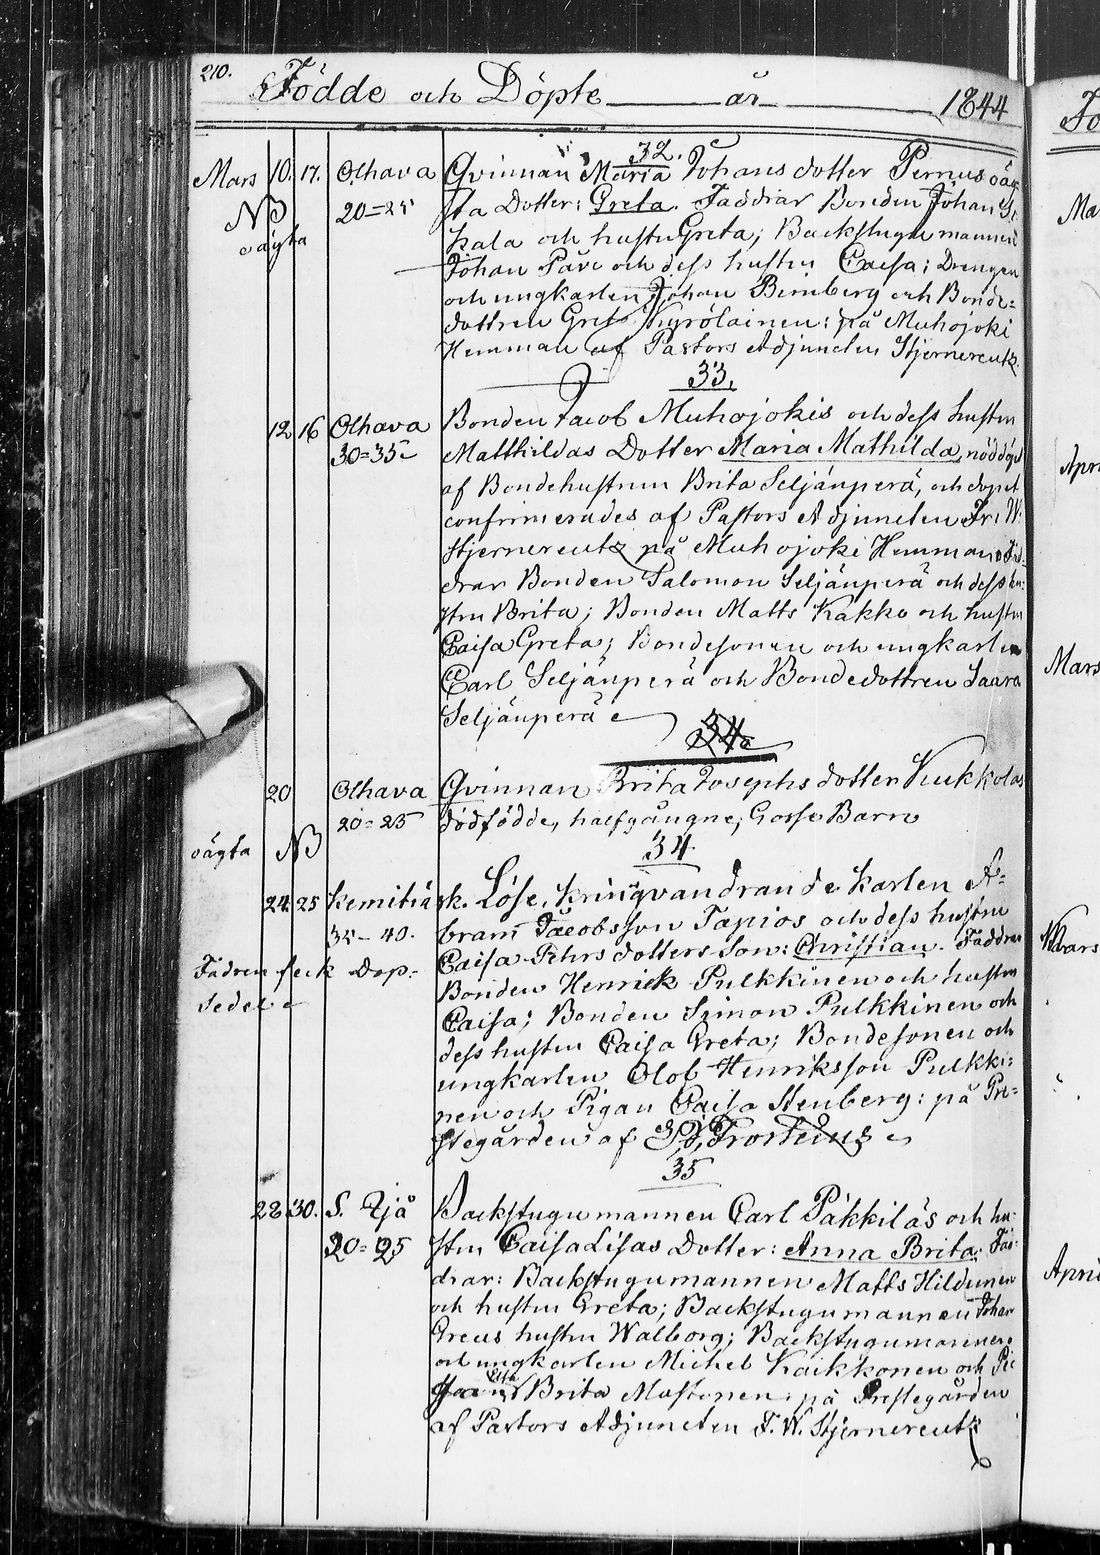 210.
Födde och Döpte år 1844
32.
Mars 10. 17. Olhava Qvinnan Maria Johans dotter Pernus oäg-
NB 20=25 sta Dotter: Greta. Faddrar Bonden Johan
oägta kala och hustru Greta; Backstugu mannen
Johan Pävi och dess hustru Caisa; Drengen
och ungkarlen Johan Birnberg och Bonde=
dottren Greta Kyrölainen: på Muhojoki
Hemman af Pastors Adjuncten Stjernereutz.
33.
12 16 Olhava Bonden Jacob Muhojokis och dess hustru
30=35 Matthildas Dotter Maria Mathilda, nöddöpt
af Bondehustrun Brita Seljänperä, och dopet
confirmerades af Pastors Adjuncten Fr. W.
Stjernereutz på Muhojoki Hemman. Fad-
drar Bonden Salomon Seljänperä och dess hu-
stru Brita; Bonden Matts Kakko och hustru
Caisa Greta; Bondesonen och ungkarlen
Carl Seljänperä och Bondedottren Saara
Seljänperä
34
20 Olhava Qvinnan Brita Josephs dotter Kukkolas
20=25 dödfödde, halfgångne, Gosse Barn
oägta NB
34.
24. 25 Kemiträsk. Löse, kringvandrande karlen A-
35-40. bram Jacobsson Tapios och dess hustru
Caisa Pehrs dotters Son: Christian. Faddrar
Fadren feck Dop-
sedel
Bonden Henrick Pulkkinen och hustru
Caisa; Bonden Simon Pulkkinen och
dess hustru Caisa Greta; Bondesonen och
ungkarlen Olof Henriksson Pulkki-
nen och Pigan Caisa Stenberg: på Pre-
stegården af Frosterus
35
28 30. S. Ijå Backstugu mannen Carl Päkkiläs och hu-
20=25 stru Caisa Lisas Dotter: Anna Brita. Fad-
drar: Backstugumannen Matts Hildunen
och hustru Greta; Backstugumannen Johan
Greus hustru Walborg; Backstugumannen
och ungkarlen Michel Kaikkonen och Pi-
gan Brita Mustonen: på Prestegården
af Pastors Adjuncten F. W. Stjernereutz